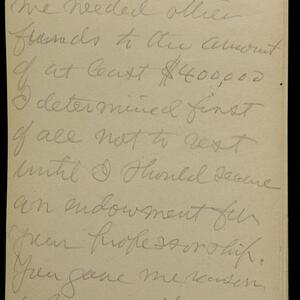 we needed other
funds to the amount
of at least $400,000
I determined first
of all not to rest
until I should secure
an endowment for
your Professorship.
You gave me reason